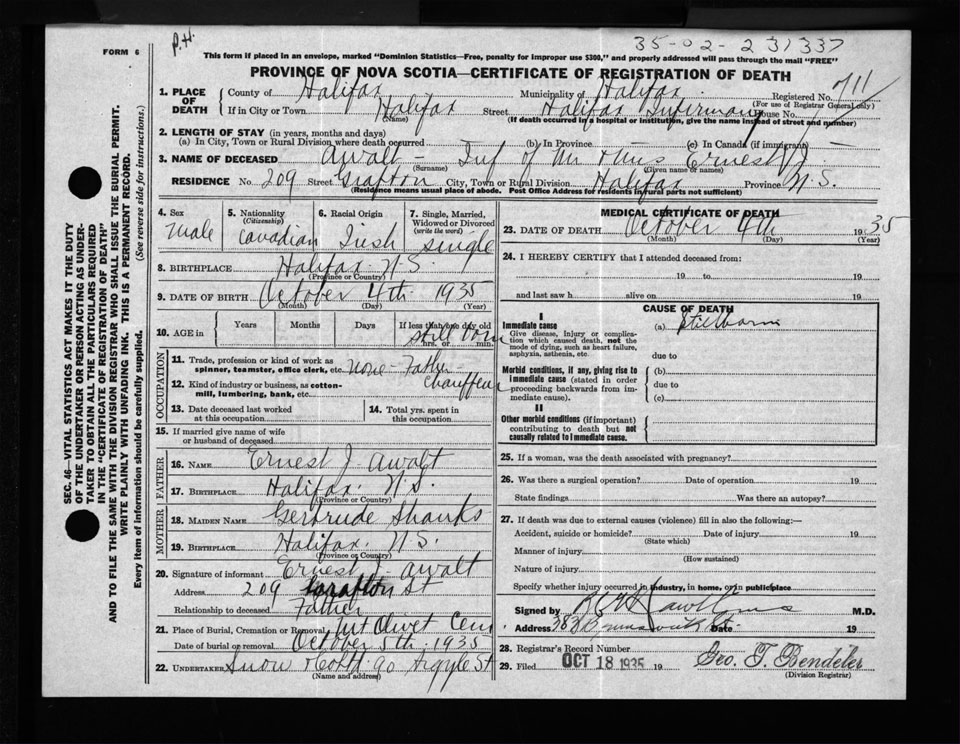 FORM 6
P.H.
35-02-231337
This form if placed in an envelope, marked "Dominion Statistics—Free, penalty for improper use $300," and properly addressed will pass through the mail "FREE"
PROVINCE OF NOVA SCOTIA—CERTIFICATE OF REGISTRATION OF DEATH
1. PLACE OF DEATH County of Halifax Municipality of Halifax Registered No. 711
(For use of Registrar General only)
If in City or Town Halifax Street Halifax Infirmary House No.
(Name) (If death occurred in a hospital or institution, give the name instead of street and number)
2. LENGTH OF STAY (in years, months and days)
(a) In City, Town or Rural Division where death occurred (b) In Province (c) In Canada (if immigrant)
3. NAME OF DECEASED Awalt - Inf of Mr & Mrs Ernest J.
(Surname) (Given name or names)
RESIDENCE No. 209 Street Grafton City, Town or Rural Division Halifax Province N.S.
(Residence means usual place of abode. Post Office Address for residents in rural parts not sufficient)
4. Sex Male
5. Nationality (Citizenship) Canadian
6. Racial Origin Irish
7. Single, Married, Widowed or Divorced (write the word) single
8. BIRTHPLACE Halifax N S
(Province or Country)
9. DATE OF BIRTH October 4th 1935
(Month) (Day) (Year)
10. AGE in Years Months Days If less than one day old
hrs. or min.
still born
OCCUPATION
11. Trade, profession or kind of work as spinner, teamster, office clerk, etc. None - Father
12. Kind of industry or business, as cotton-mill, lumbering, bank, etc. Chauffeur
13. Date deceased last worked at this occupation
14. Total yrs. spent in this occupation
15. If married give name of wife or husband of deceased
FATHER
16. NAME Ernest J. Awalt
17. BIRTHPLACE Halifax N.S.
(Province or Country)
MOTHER
18. MAIDEN NAME Gertrude Shanks
19. BIRTHPLACE Halifax. N.S.
(Province or Country)
20. Signature of informant Ernest J. Awalt
Address 209 Grafton St
Relationship to deceased Father
21. Place of Burial, Cremation or Removal Mt Olivet Cem
Date of burial or removal October 5th, 1935
22. UNDERTAKER Snow & Co Ltd 90 Argyle St
(Name and address)
MEDICAL CERTIFICATE OF DEATH
23. DATE OF DEATH October 4th 1935
(Month) (Day) (Year)
24. I HEREBY CERTIFY that I attended deceased from:
19 to 19
and last saw h alive on 19
CAUSE OF DEATH
I
Immediate cause
Give disease, injury or complication which caused death, not the mode of dying, such as heart failure, asphyxia, asthenia, etc.
(a) Stillborn
due to
Morbid conditions, if any, giving rise to immediate cause (stated in order proceeding backwards from immediate cause).
(b)
due to
(c)
II
Other morbid conditions (if important) contributing to death but not causally related to immediate cause.
25. If a woman, was the death associated with pregnancy?
26. Was there a surgical operation? Date of operation 19
State findings Was there an autopsy?
27. If death was due to external causes (violence) fill in also the following:—
Accident, suicide or homicide? Date of injury 19
(State which)
Manner of injury
(How sustained)
Nature of injury
Specify whether injury occurred in industry, in home, or in public place
Signed by M.D.
Address 383 Brunswick St. Date 19
28. Registrar's Record Number
29. Filed OCT 18 1935 19 Geo. T. Bendeler
(Division Registrar)
SEC. 46—VITAL STATISTICS ACT MAKES IT THE DUTY
OF THE UNDERTAKER OR PERSON ACTING AS UNDER-
TAKER TO OBTAIN ALL THE PARTICULARS REQUIRED
IN THE "CERTIFICATE OF REGISTRATION OF DEATH"
AND TO FILE THE SAME WITH THE DIVISION REGISTRAR WHO SHALL ISSUE THE BURIAL PERMIT.
WRITE PLAINLY WITH UNFADING INK. THIS IS A PERMANENT RECORD.
Every item of information should be carefully supplied. (See reverse side for instructions.)